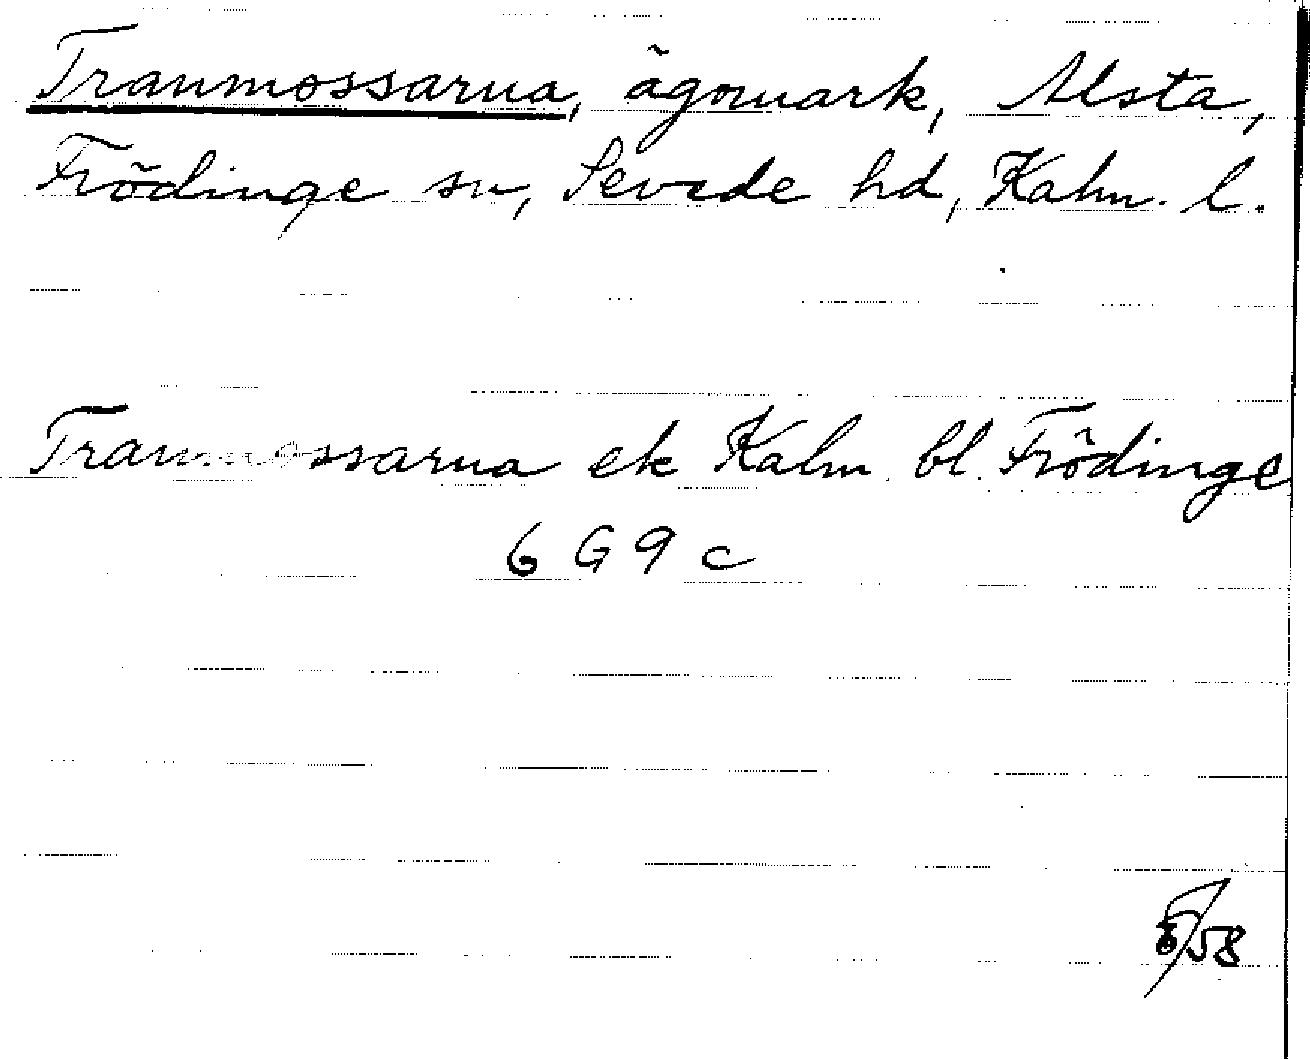 Tranmossarna, ägomark, Alsta,
Frödinge sn, Sevede hd, Kalm. l.
Tranmossarna ek Kalm bl. Frödinge
6 G 9 c
/58